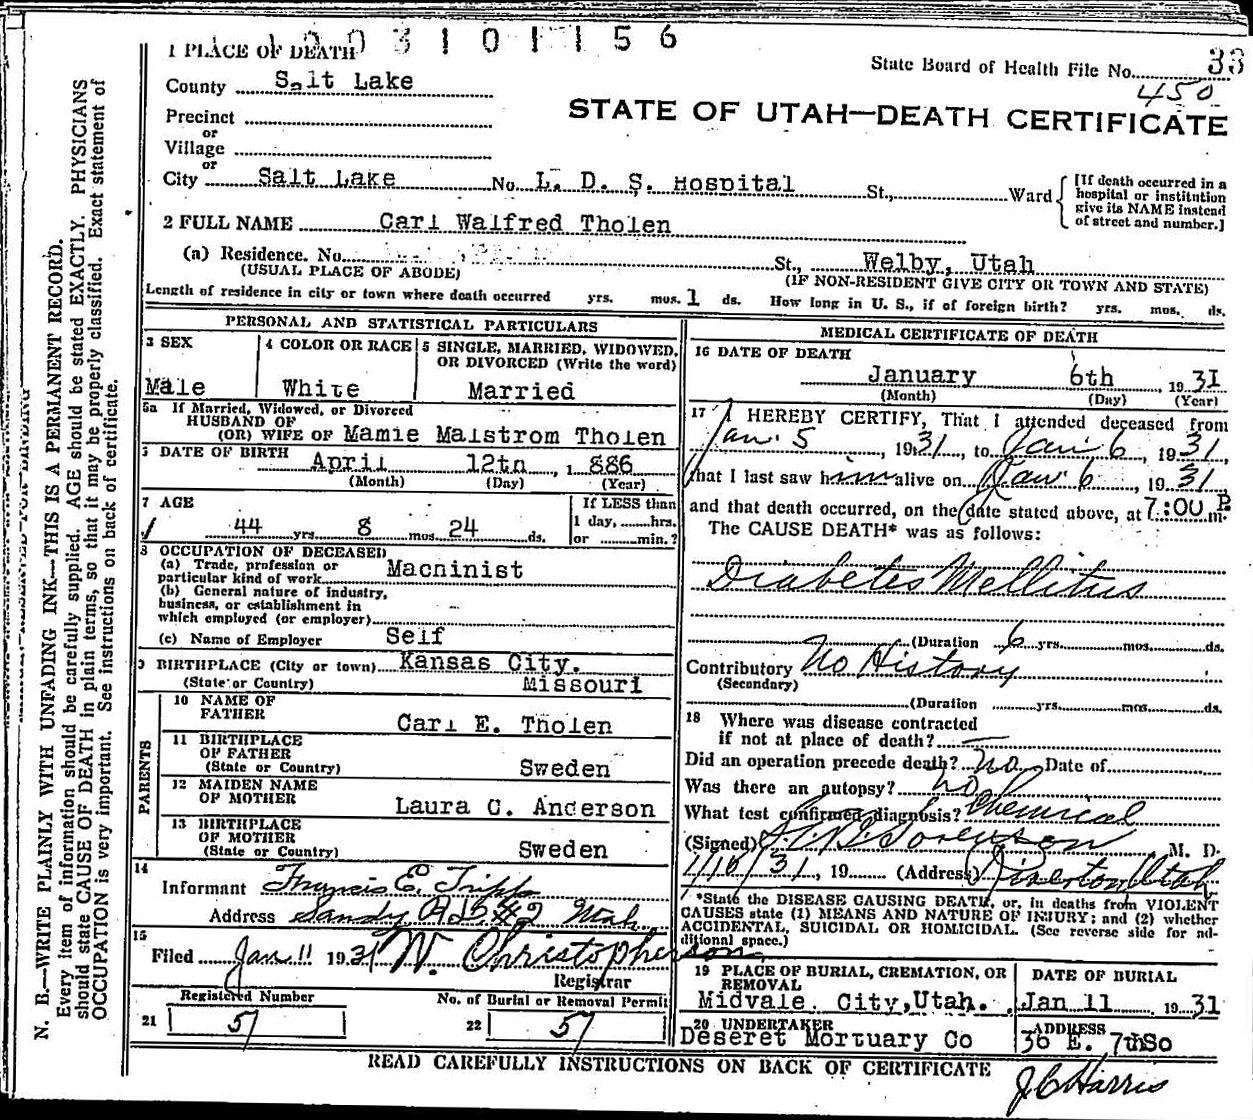 1 PLACE OF DEATH
1003101156
State Board of Health File No. 33
450
County Salt Lake
STATE OF UTAH—DEATH CERTIFICATE
Precinct
or
Village
or
City Salt Lake No. L. D. S. Hospital St., Ward [If death occurred in a hospital or institution give its NAME instead of street and number.]
2 FULL NAME Carl Walfred Tholen
(a) Residence. No. St., Welby, Utah
(USUAL PLACE OF ABODE) (IF NON-RESIDENT GIVE CITY OR TOWN AND STATE)
Length of residence in city or town where death occurred yrs. mos. 1 ds. How long in U. S., if of foreign birth? yrs. mos. ds.
PERSONAL AND STATISTICAL PARTICULARS
3 SEX
Male
4 COLOR OR RACE
White
5 SINGLE, MARRIED, WIDOWED,
OR DIVORCED (Write the word)
Married
5a If Married, Widowed, or Divorced
HUSBAND OF
(OR) WIFE OF Mamie Malstrom Tholen
6 DATE OF BIRTH April 12th, 1886
(Month) (Day) (Year)
7 AGE
44 yrs. 8 mos. 24 ds.
If LESS than
1 day, hrs.
or min.?
8 OCCUPATION OF DECEASED
(a) Trade, profession or
particular kind of work Machinist
(b) General nature of industry,
business, or establishment in
which employed (or employer)
(c) Name of Employer Self
9 BIRTHPLACE (City or town) Kansas City.
(State or Country) Missouri
PARENTS
10 NAME OF
FATHER Carl E. Tholen
11 BIRTHPLACE
OF FATHER
(State or Country) Sweden
12 MAIDEN NAME
OF MOTHER Laura C. Anderson
13 BIRTHPLACE
OF MOTHER
(State or Country) Sweden
14
Informant Francis E. Tripp
Address Sandy RD #2 Utah
15
Filed Jan 11 1931 W. Christopherson
Registrar
Registered Number
21 57
No. of Burial or Removal Permit
22 57
MEDICAL CERTIFICATE OF DEATH
16 DATE OF DEATH
January 6th, 1931
(Month) (Day) (Year)
17 I HEREBY CERTIFY, That I attended deceased from
Jan. 5, 1931, to Jan 6, 1931,
that I last saw him alive on Jan 6, 1931,
and that death occurred, on the date stated above, at 7:00 P m.
The CAUSE DEATH* was as follows:
Diabetes Mellitus
(Duration 6 yrs. mos. ds.
Contributory No History
(Secondary)
(Duration yrs. mos. ds.
18 Where was disease contracted
if not at place of death? —
Did an operation precede death? no Date of
Was there an autopsy? no
What test confirmed diagnosis? Chemical
(Signed) Sorenson, M. D.
1/10/31, 19 (Address) Riverton Utah
*State the DISEASE CAUSING DEATH, or, in deaths from VIOLENT
CAUSES state (1) MEANS AND NATURE OF INJURY; and (2) whether
ACCIDENTAL, SUICIDAL OR HOMICIDAL. (See reverse side for ad-
ditional space.)
19 PLACE OF BURIAL, CREMATION, OR
REMOVAL
Midvale City, Utah.
DATE OF BURIAL
Jan 11 1931
20 UNDERTAKER
Deseret Mortuary Co
ADDRESS
36 E. 7th So
READ CAREFULLY INSTRUCTIONS ON BACK OF CERTIFICATE
J C Harris
N. B.—WRITE PLAINLY WITH UNFADING INK—THIS IS A PERMANENT RECORD.
Every item of information should be carefully supplied. AGE should be stated EXACTLY. PHYSICIANS
should state CAUSE OF DEATH in plain terms, so that it may be properly classified. Exact statement of
OCCUPATION is very important. See instructions on back of certificate.